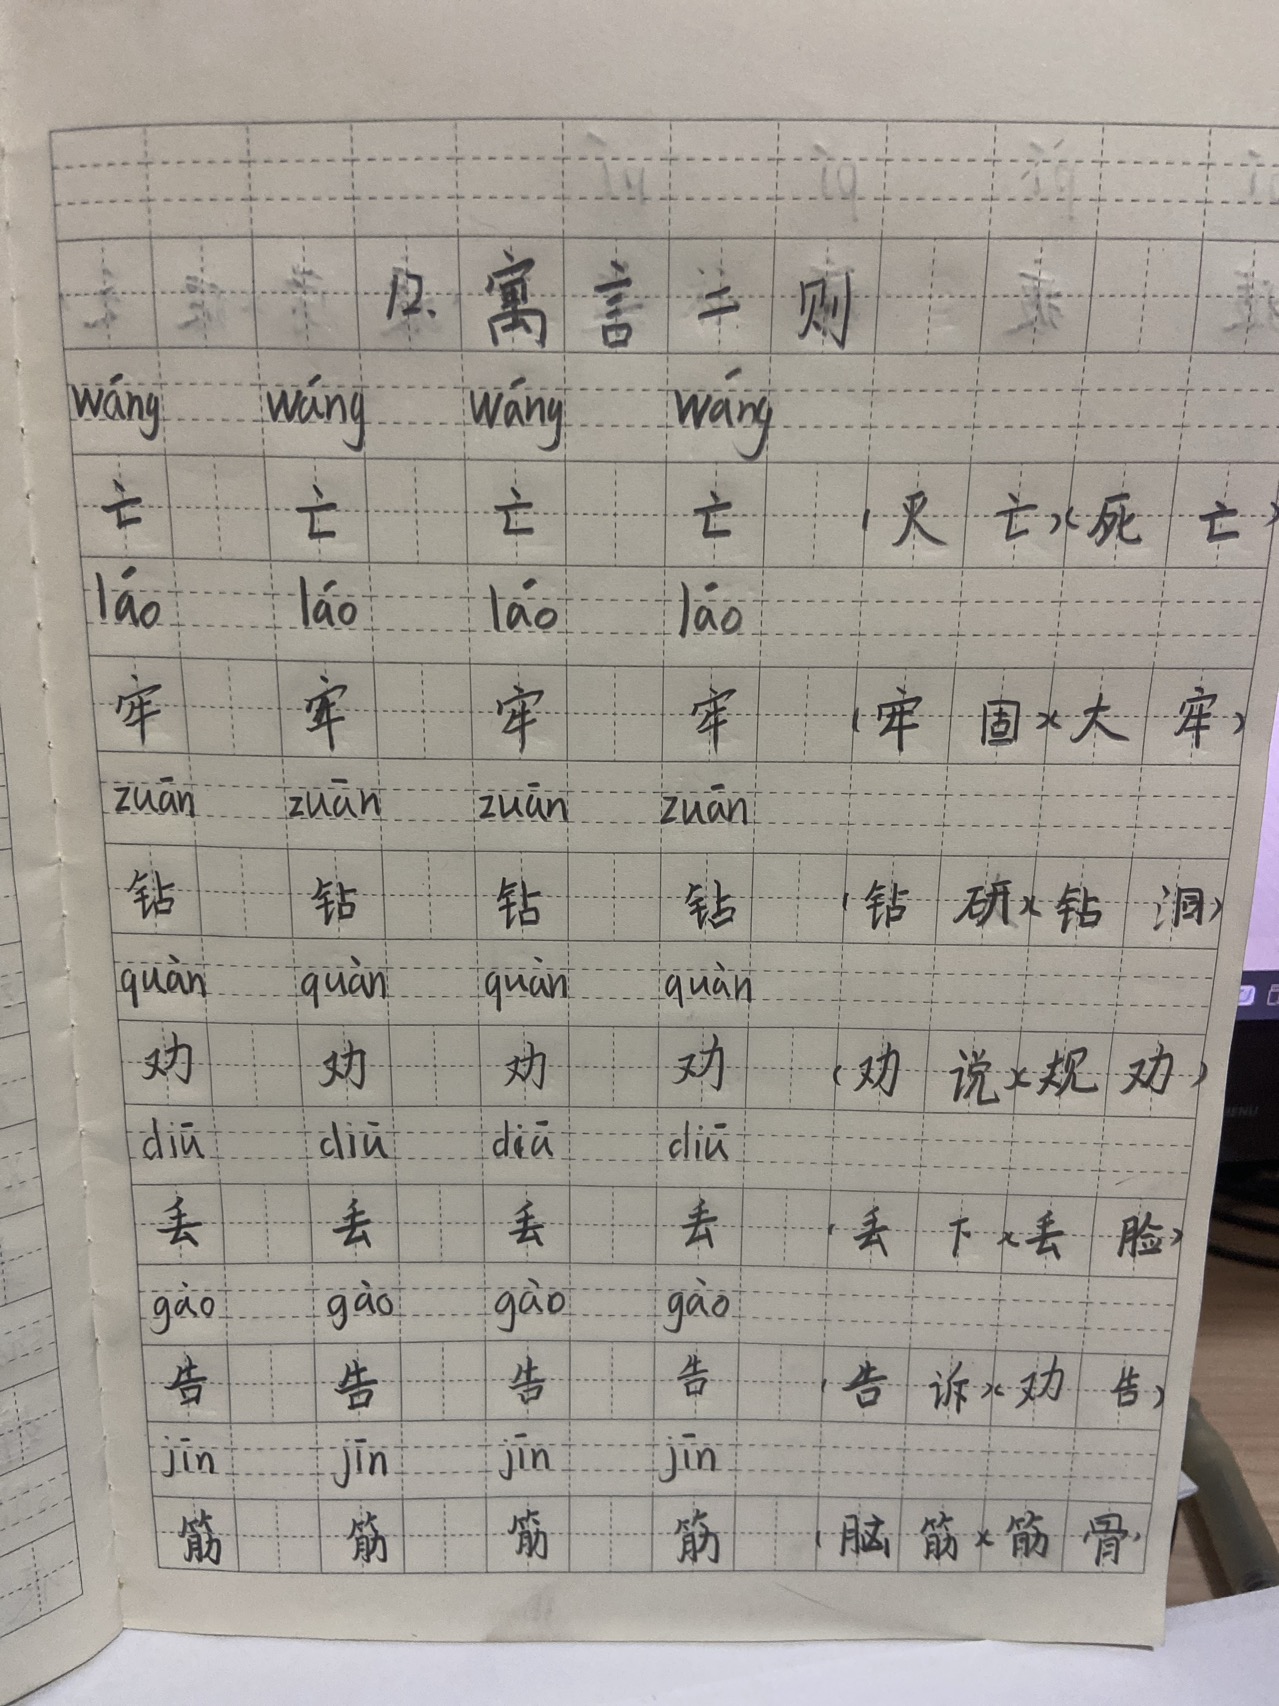 12. 寓言二则
wáng wáng wáng wáng
亡 亡 亡 亡 (灭亡)(死亡)
láo láo láo láo
牢 牢 牢 牢 (牢固)(大牢)
zuān zuān zuān zuān
钻 钻 钻 钻 (钻研)(钻洞)
quàn quàn quàn quàn
劝 劝 劝 劝 (劝说)(规劝)
diū diū diū diū
丢 丢 丢 丢 (丢下)(丢脸)
gào gào gào gào
告 告 告 告 (告诉)(劝告)
jīn jīn jīn jīn
筋 筋 筋 筋 (脑筋)(筋骨)